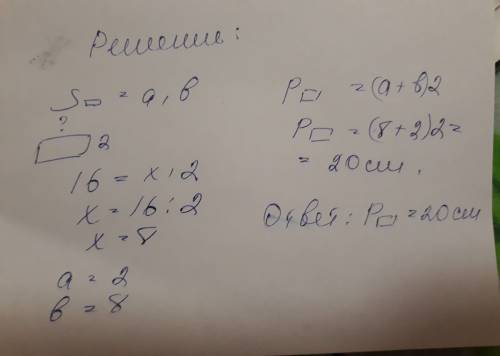 Решение:
S▭ = а, в
?
2
16 = х, 2
х = 16 : 2
х = 8
а = 2
в = 8
P▭ = (а + в)2
P▭ = (8 + 2)2 =
= 20 см.
Ответ: P▭ = 20 см